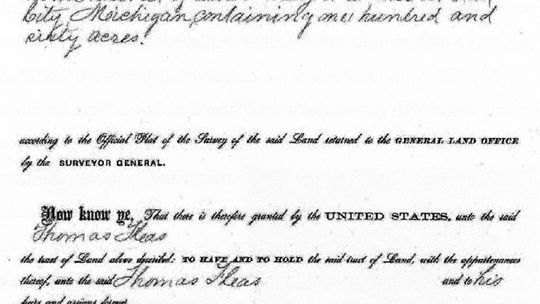 City Michigan, containing one hundred and
sixty acres.
according to the Official Plat of the Survey of the said Land returned to the GENERAL LAND OFFICE
by the SURVEYOR GENERAL.
Now know ye, That there is therefore granted by the UNITED STATES, unto the said
Thomas Fleas
the tract of Land above described: TO HAVE AND TO HOLD the said tract of Land, with the appurtenances
thereof, unto the said Thomas Fleas and to his
heirs and assigns forever